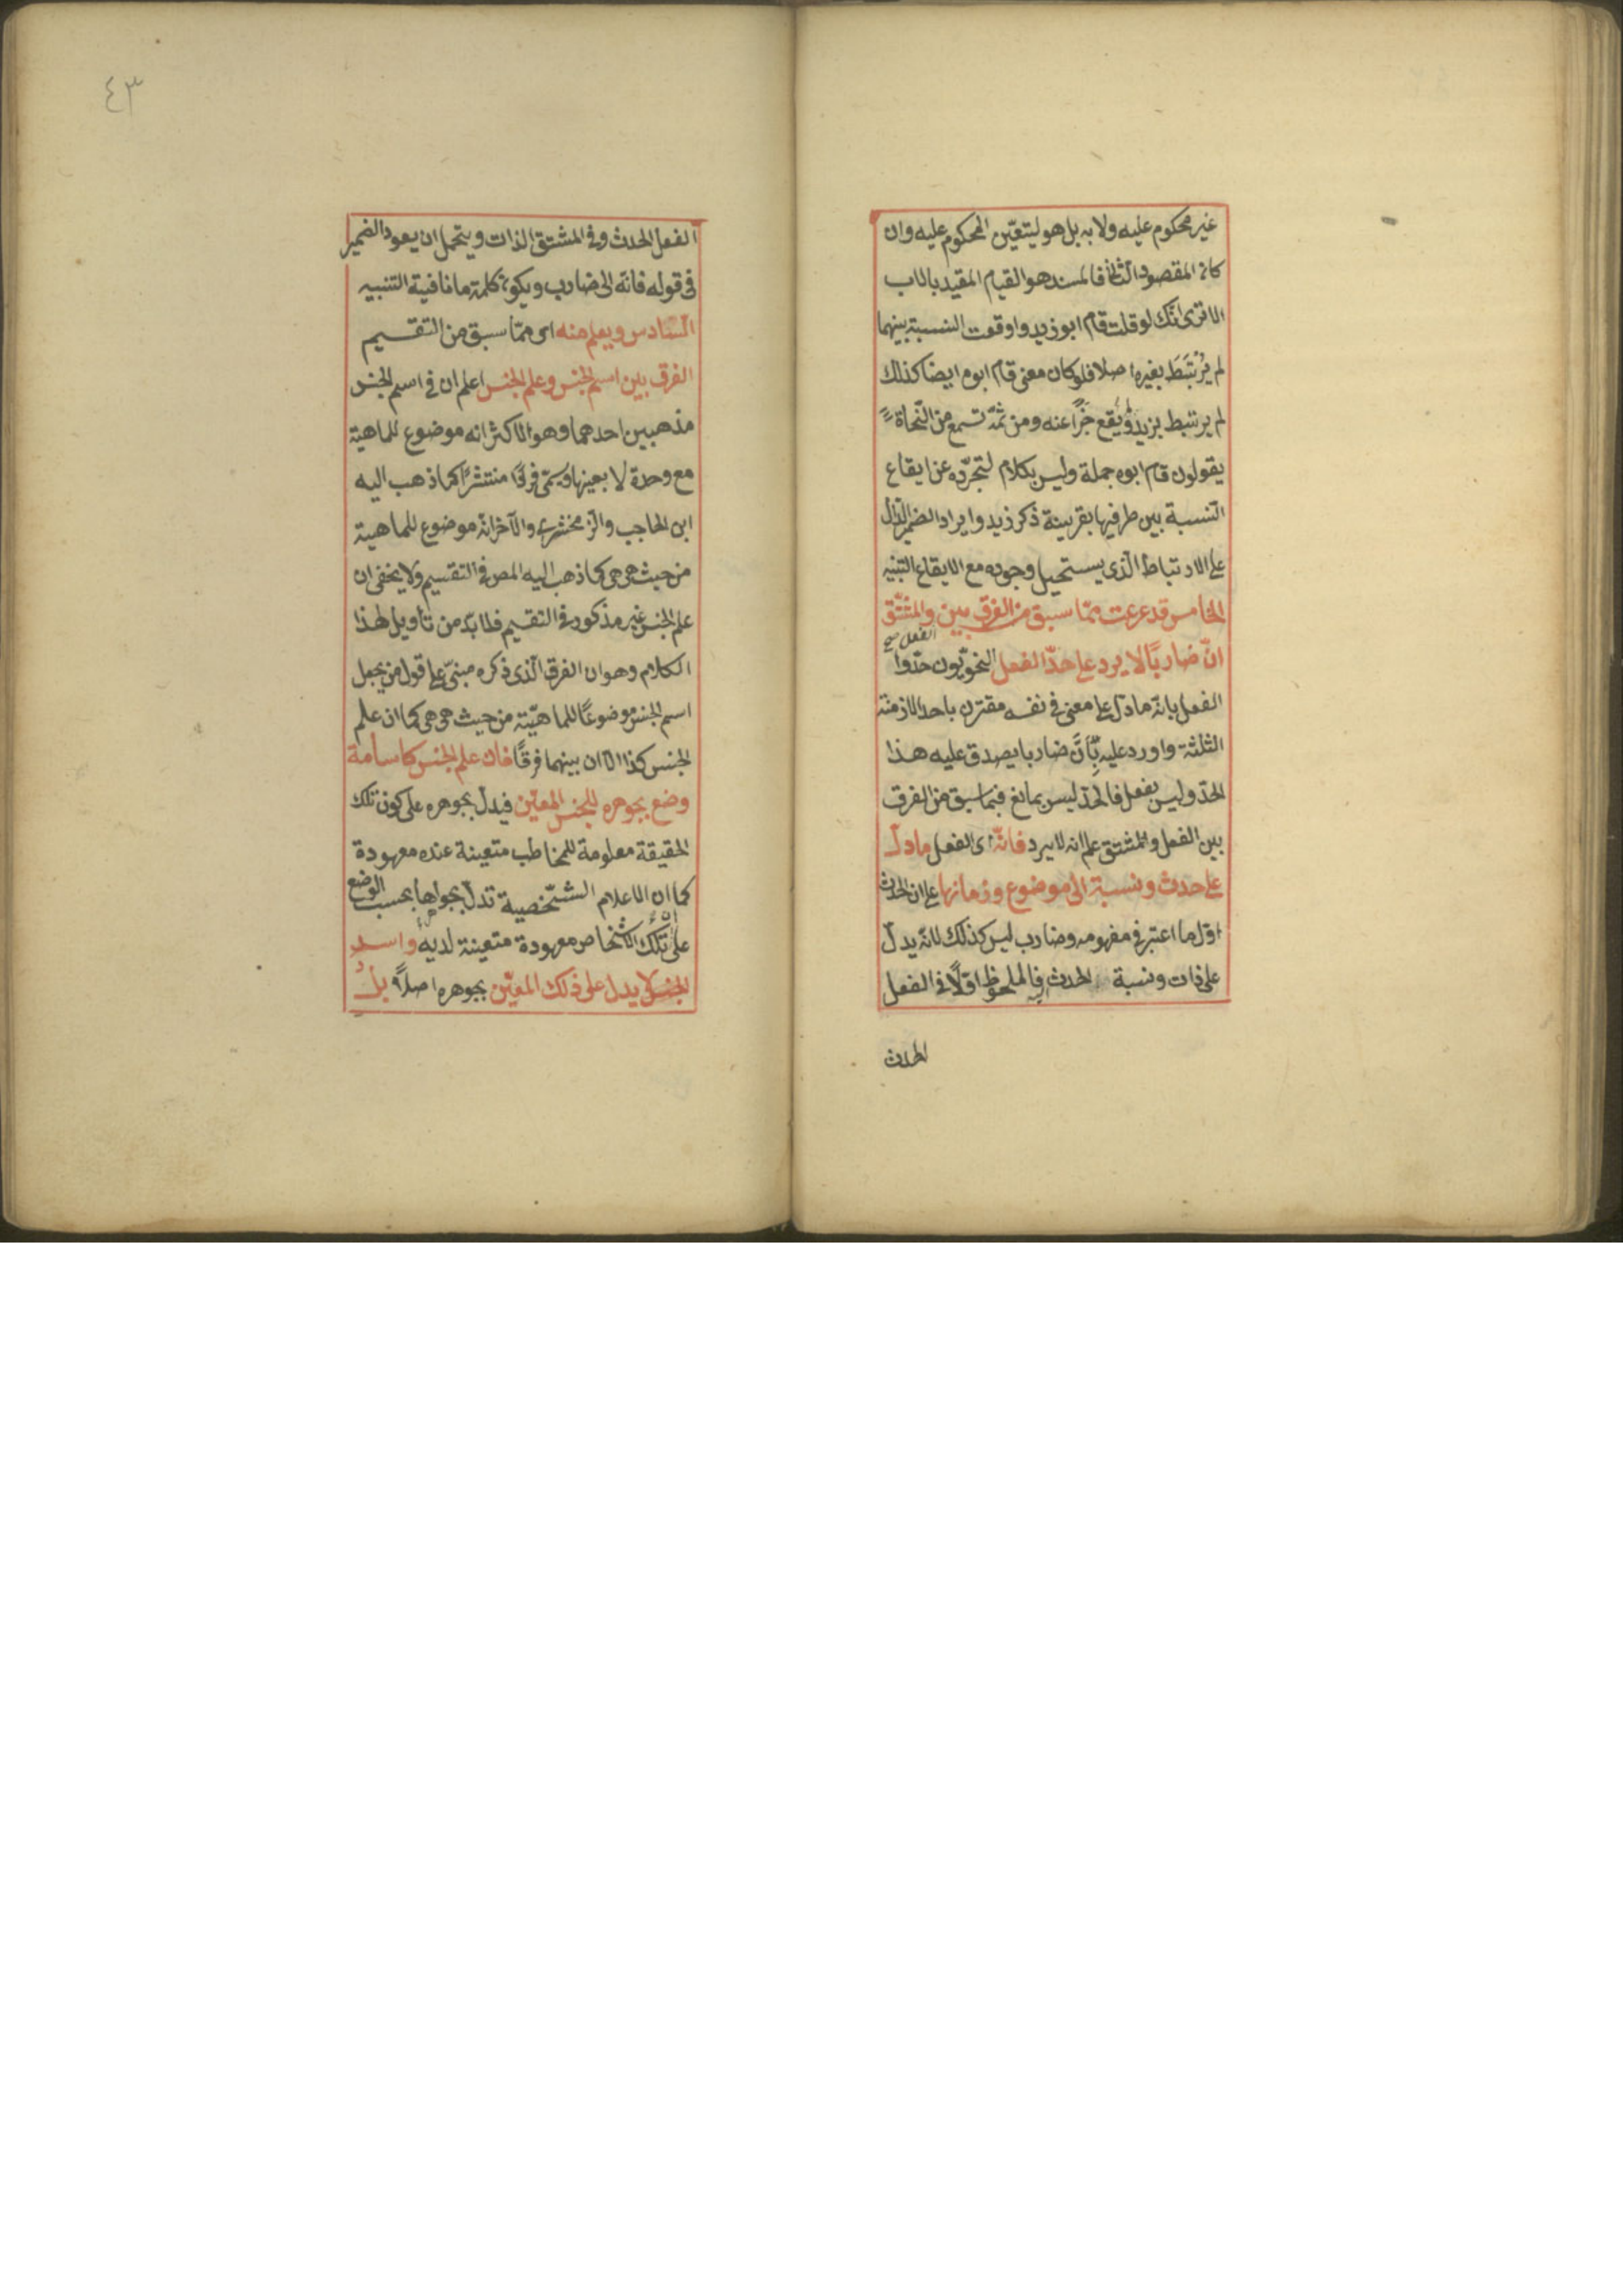 غير محكوم عليه ولا به بل هو ليتعيّن المحكوم عليه وان
كان المقصود الثانى فالمسند هو القيام المقيد بالاب
الا ترى انّك لو قلت قام ابو زيد واوقعت النسبة بينهما
لم يرتبط بغيره اصلا فلو كان معنى قام ابوه ايضا كذلك
لم يرتبط بزيد ولم يقع خبرا عنه ومن ثمّة تسمع من النّحاة
يقولون قام ابوه جملة وليس بكلام لتجرّده عن ايقاع
النّسبة بين طرفيها بقرينة ذكر زيد وايراد الضمير الدّال
على الارتباط الّذى يستحيل وجوده مع الايقاع التنبيه
الخامس قد عرفت ممّا سبق من الفرق بين والمشتّق
الفعل صح
انّ ضاربًا لا يرد على حدّ الفعل النحويّون حدّوا
الفعل بانّه ما دلّ على معنى فى نفسه مقترن باحد الازمنة
الثلثة واورد عليه بِأنَّ ضاربا يصدق عليه هذا
الحدّ وليس بفعل فالحدّ ليس بمانع فبما سبق من الفرق
بين الفعل والمشتق علم انه لا يرد فانّه اى الفعل ما دلّ
على حدث ونسبة الى موضوع وزمانها على ان الحدث
اوّل ما اعتبر فى مفهومه وضارب ليس كذلك لانّه يدلّ
على ذات ونسبة الحدث فالملحوظ اوّلًا فى الفعل
الحدث
٤٣
الفعل الحدث وفى المشتق الذات ويحتمل ان يعود الضمير
فى قوله فانّه الى ضارب ويكون كلمة ما نافية التنبيه
السّادس ويعلم منه اى ممّا سبق من التقسيم
الفرق بين اسم الجنس وعلم الجنس اعلم ان فى اسم الجنس
مذهبين احدهما وهو الاكثر انه موضوع للماهية
مع وحدة لا بعينها ويسمّى فردًا منتشرًا كما ذهب اليه
ابن الحاجب والزمخشرى والآخر انّه موضوع للماهية
من حيث هى هى كما ذهب اليه المص فى التقسيم ولا يخفى ان
علم الجنس غير مذكور فى التقسيم فلا بدّ من تأويل لهذا
الكلام وهو ان الفرق الّذى ذكره مبنىّ على قول من يجعل
اسم الجنس موضوعًا للماهيّة من حيث هى هى كما ان علم
الجنس كذا الّا ان بينهما فرقًا فان علم الجنس كاسامة
وضع بجوهره للجنس المعيّن فيدلّ بجوهره على كون تلك
الحقيقة معلومة للمخاطب متعينة عنده معهودة
كما ان الاعلام الشّخصية تدلّ بجواهرها بحسب الوضع
على تلك الاشخاص معهودة متعينة لديه واسم
الجنس لا يدل على ذلك المعيّن بجوهره اصلًا بل